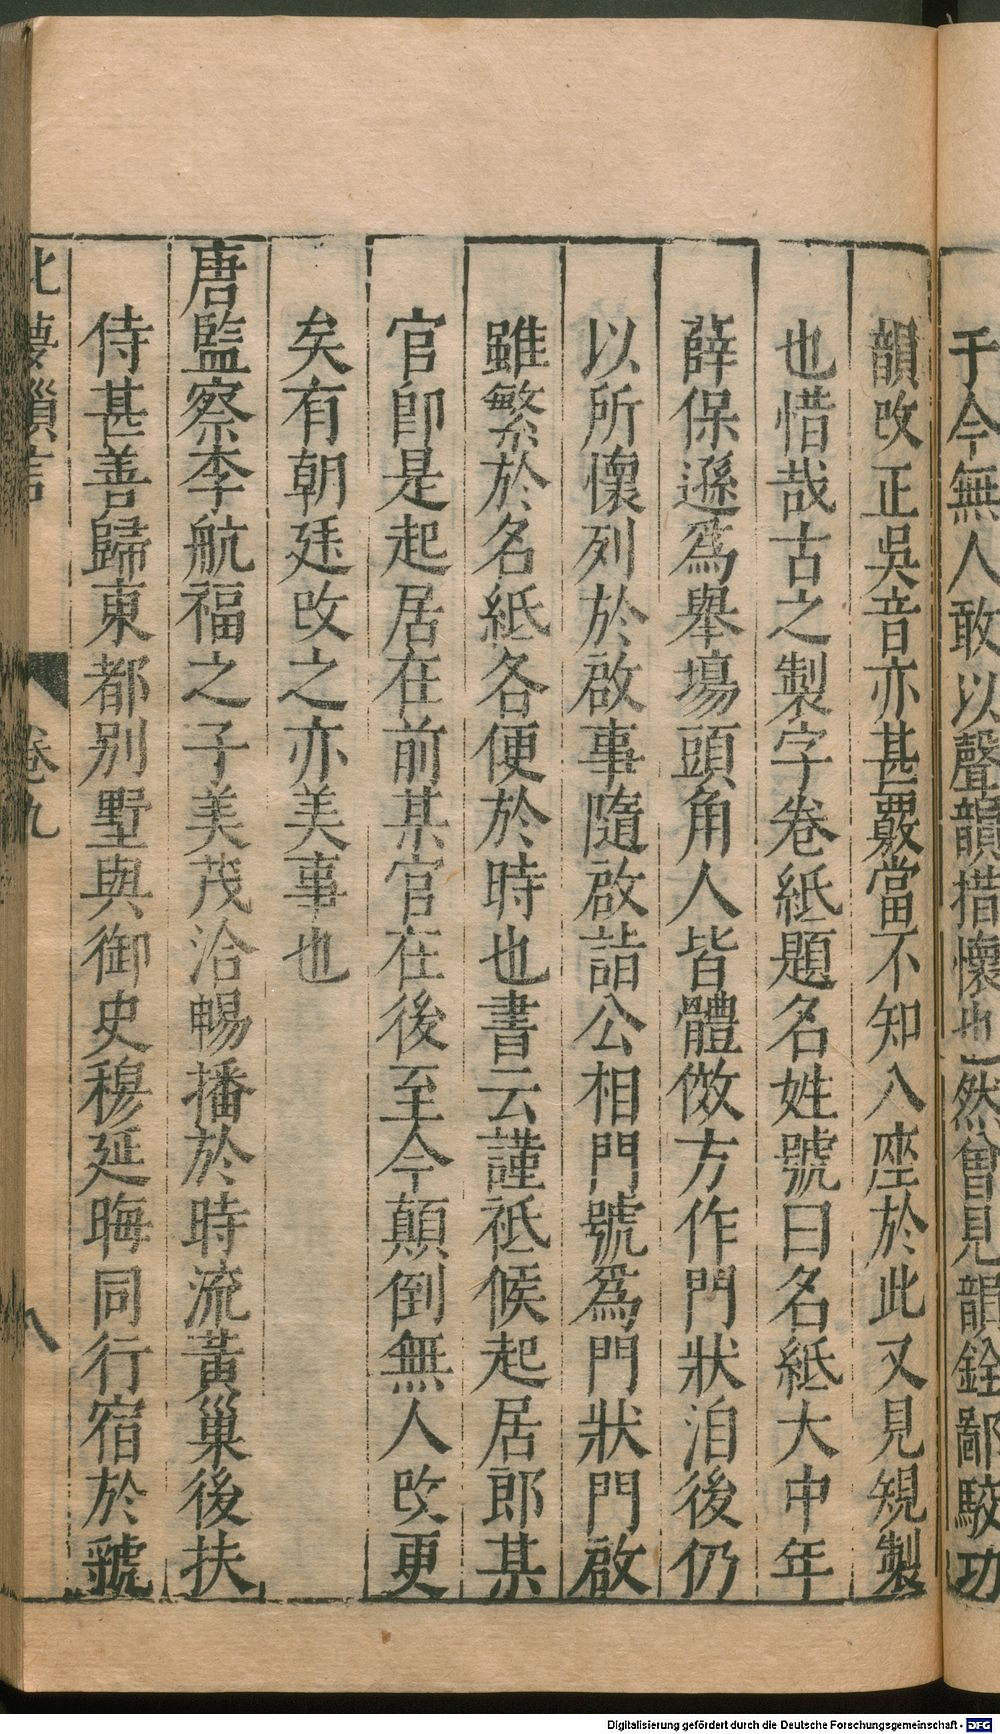 于今無人敢以聲韻措懷也然曾見韻銓鄙駮功
韻改正吳音亦甚覈當不知入座於此又見䂓製
也惜哉古之製字卷紙題名姓號曰名紙大中年
薛保遜爲舉塲頭角人皆體傚方作門狀洎後仍
以所懷列於啟事隨啟詣公相門號爲門狀門啟
雖繁於名紙各便於時也書云謹祗候起居郎某
官卽是起居在前某官在後至今顛倒無人改更
矣有朝廷改之亦美事也
唐監察李航福之子美茂洽暢播於時流黃巢後扶
侍甚善歸東都別墅與御史穆延晦同行宿於虢
北夢瑣言 卷九 八
Digitalisierung gefördert durch die Deutsche Forschungsgemeinschaft - DFG